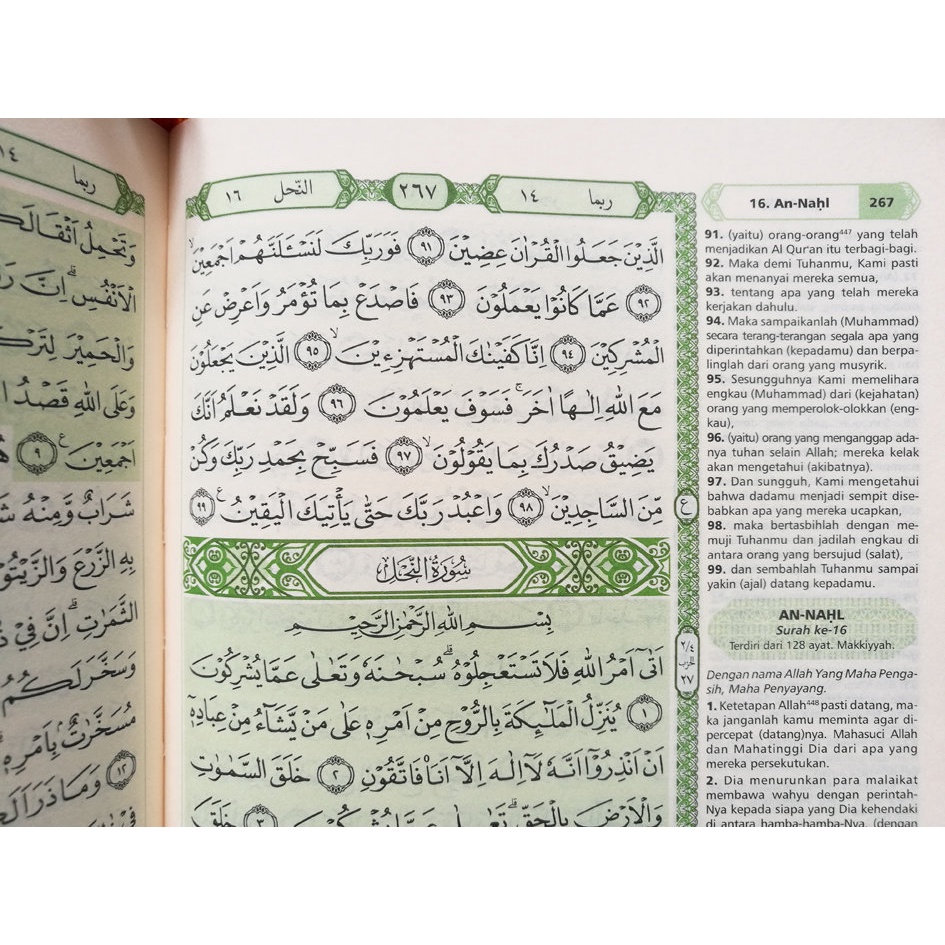 ربما ١٤
٢٦٧
النّحل ١٦
الَّذِيْنَ جَعَلُوا الْقُرْاٰنَ عِضِيْنَ ٩١ فَوَرَبِّكَ لَنَسْـَٔلَنَّهُمْ اَجْمَعِيْنَۙ
٩٢ عَمَّا كَانُوْا يَعْمَلُوْنَ ٩٣ فَاصْدَعْ بِمَا تُؤْمَرُ وَاَعْرِضْ عَنِ
الْمُشْرِكِيْنَ ٩٤ اِنَّا كَفَيْنٰكَ الْمُسْتَهْزِءِيْنَۙ ٩٥ الَّذِيْنَ يَجْعَلُوْنَ
مَعَ اللّٰهِ اِلٰهًا اٰخَرَۚ فَسَوْفَ يَعْلَمُوْنَ ٩٦ وَلَقَدْ نَعْلَمُ اَنَّكَ
يَضِيْقُ صَدْرُكَ بِمَا يَقُوْلُوْنَۙ ٩٧ فَسَبِّحْ بِحَمْدِ رَبِّكَ وَكُنْ
مِّنَ السّٰجِدِيْنَۙ ٩٨ وَاعْبُدْ رَبَّكَ حَتّٰى يَأْتِيَكَ الْيَقِيْنُ ࣖ ٩٩
سُوْرَةُ النَّحْلِ
بِسْمِ اللّٰهِ الرَّحْمٰنِ الرَّحِيْمِ
اَتٰىٓ اَمْرُ اللّٰهِ فَلَا تَسْتَعْجِلُوْهُۗ سُبْحٰنَهٗ وَتَعٰلٰى عَمَّا يُشْرِكُوْنَ
١ يُنَزِّلُ الْمَلٰۤىِٕكَةَ بِالرُّوْحِ مِنْ اَمْرِهٖ عَلٰى مَنْ يَّشَاۤءُ مِنْ عِبَادِهٖٓ
اَنْ اَنْذِرُوْٓا اَنَّهٗ لَآ اِلٰهَ اِلَّآ اَنَا۠ فَاتَّقُوْنِ ٢ خَلَقَ السَّمٰوٰتِ
وَالْاَرْضَ بِالْحَقِّۗ تَعٰلٰى عَمَّا يُشْرِكُوْنَ ٣ خَلَقَ
ع
٢/٤
الحزب
٢٧
16. An-Naḥl 267
91. (yaitu) orang-orang⁴⁴⁷ yang telah
menjadikan Al Qur'an itu terbagi-bagi.
92. Maka demi Tuhanmu, Kami pasti
akan menanyai mereka semua,
93. tentang apa yang telah mereka
kerjakan dahulu.
94. Maka sampaikanlah (Muhammad)
secara terang-terangan segala apa yang
diperintahkan (kepadamu) dan berpa-
linglah dari orang yang musyrik.
95. Sesungguhnya Kami memelihara
engkau (Muhammad) dari (kejahatan)
orang yang memperolok-olokkan (eng-
kau),
96. (yaitu) orang yang menganggap ada-
nya tuhan selain Allah; mereka kelak
akan mengetahui (akibatnya).
97. Dan sungguh, Kami mengetahui
bahwa dadamu menjadi sempit dise-
babkan apa yang mereka ucapkan,
98. maka bertasbihlah dengan me-
muji Tuhanmu dan jadilah engkau di
antara orang yang bersujud (salat),
99. dan sembahlah Tuhanmu sampai
yakin (ajal) datang kepadamu.
AN-NAḤL
Surah ke-16
Terdiri dari 128 ayat. Makkiyyah.
Dengan nama Allah Yang Maha Penga-
sih, Maha Penyayang.
1. Ketetapan Allah⁴⁴⁸ pasti datang, ma-
ka janganlah kamu meminta agar di-
percepat (datang)nya. Mahasuci Allah
dan Mahatinggi Dia dari apa yang
mereka persekutukan.
2. Dia menurunkan para malaikat
membawa wahyu dengan perintah-
Nya kepada siapa yang Dia kehendaki
di antara hamba-hamba-Nya, (dengan
ربما ١٤
وَتَحْمِلُ اَثْقَالَكُ
الْاَنْفُسِۗ اِنَّ رَ
وَالْحَمِيْرَ لِتَرْكَ
وَعَلَى اللّٰهِ قَصْدُ ا
اَجْمَعِيْنَ ࣖ ٩ هُ
شَرَابٌ وَّمِنْهُ شَ
بِهِ الزَّرْعَ وَالزَّيْتُوْ
الثَّمَرٰتِۗ اِنَّ فِيْ ذٰ
وَسَخَّرَ لَكُمُ
مُسَخَّرٰتٌۢ بِاَمْرِهٖ
١٢ وَمَا ذَرَاَ لَكُ